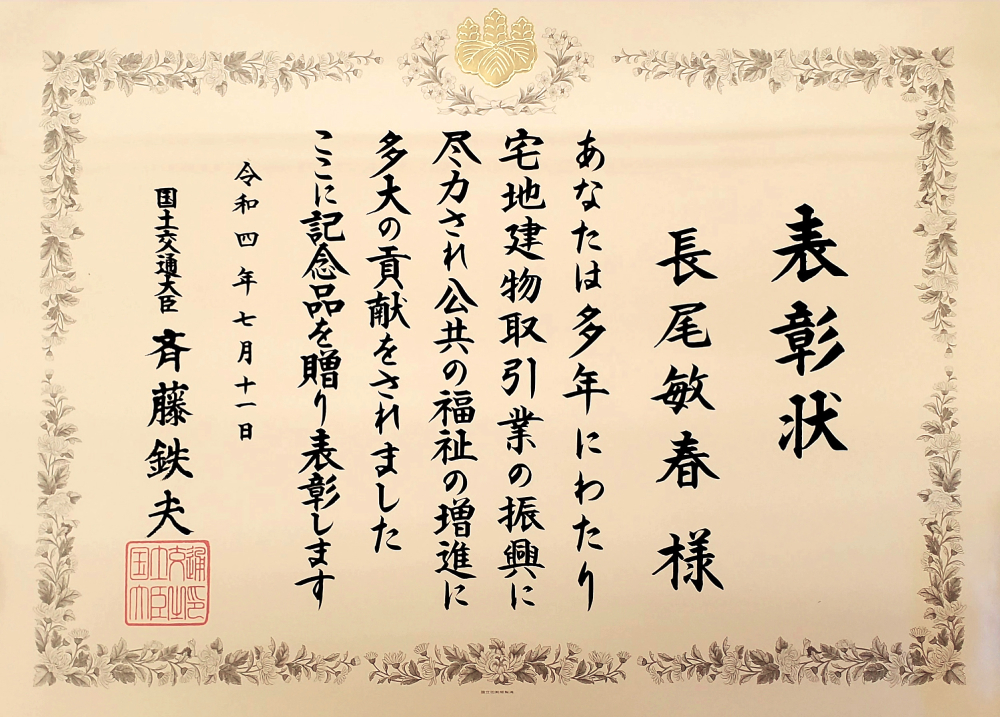 表彰状
長尾敏春 様
あなたは多年にわたり
宅地建物取引業の振興に
尽力され公共の福祉の増進に
多大の貢献をされました
ここに記念品を贈り表彰します
令和四年七月十一日
国土交通大臣 斉藤鉄夫
国土交通大臣之印